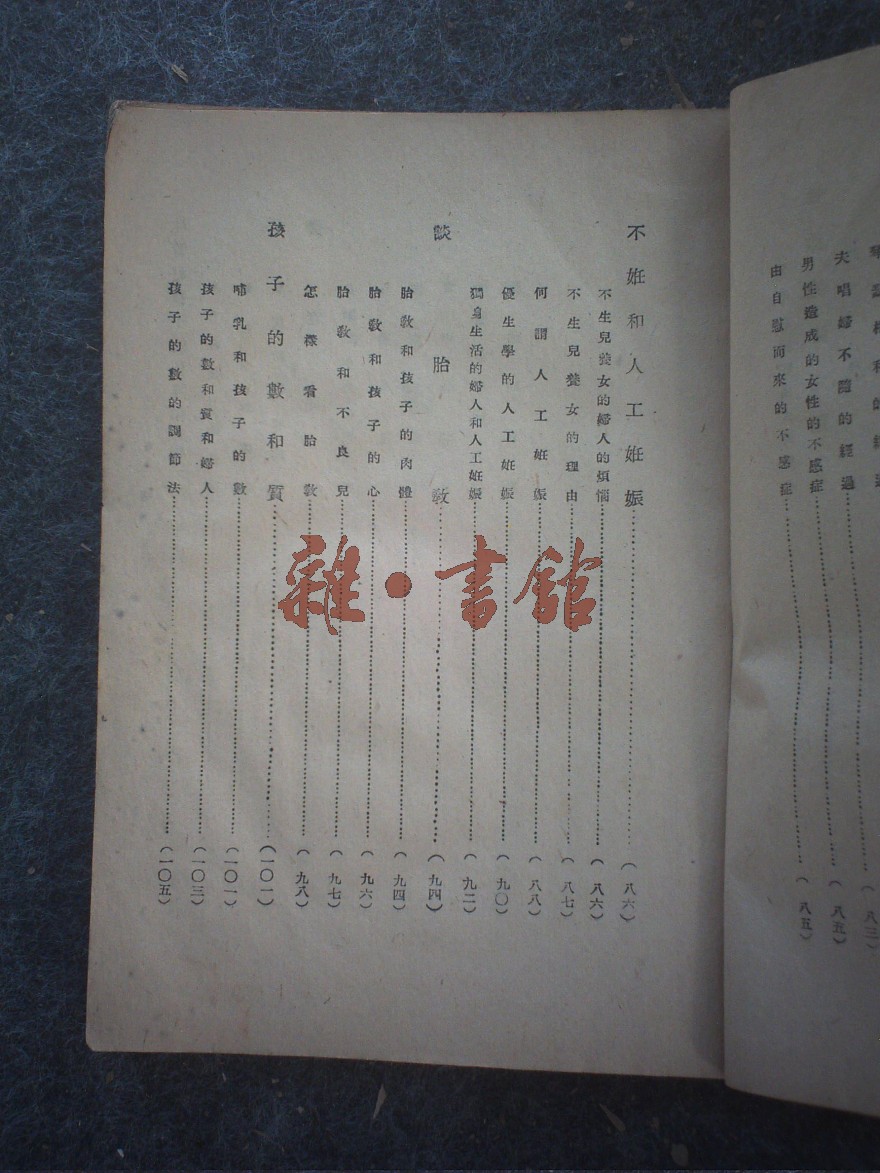 夫唱婦不隨的經過……(八五)
男性造成的女性的不感症……(八五)
由自慰而來的不感症……
不妊和人工妊娠……(八六)
不生兒養女的婦人的煩惱……(八六)
不生兒養女的理由……(八七)
何謂人工妊娠……(八八)
優生學的人工妊娠……(九〇)
獨身生活的婦人和人工妊娠……(九二)
談胎敎……(九四)
胎敎和孩子的肉體……(九四)
胎敎和孩子的心……(九六)
胎敎和不良兒……(九七)
怎樣看胎敎……(九八)
孩子的數和質……(一〇一)
哺乳和孩子的數……(一〇一)
孩子的數和質和婦人……(一〇三)
孩子的數的調節法……(一〇五)
雜·書館